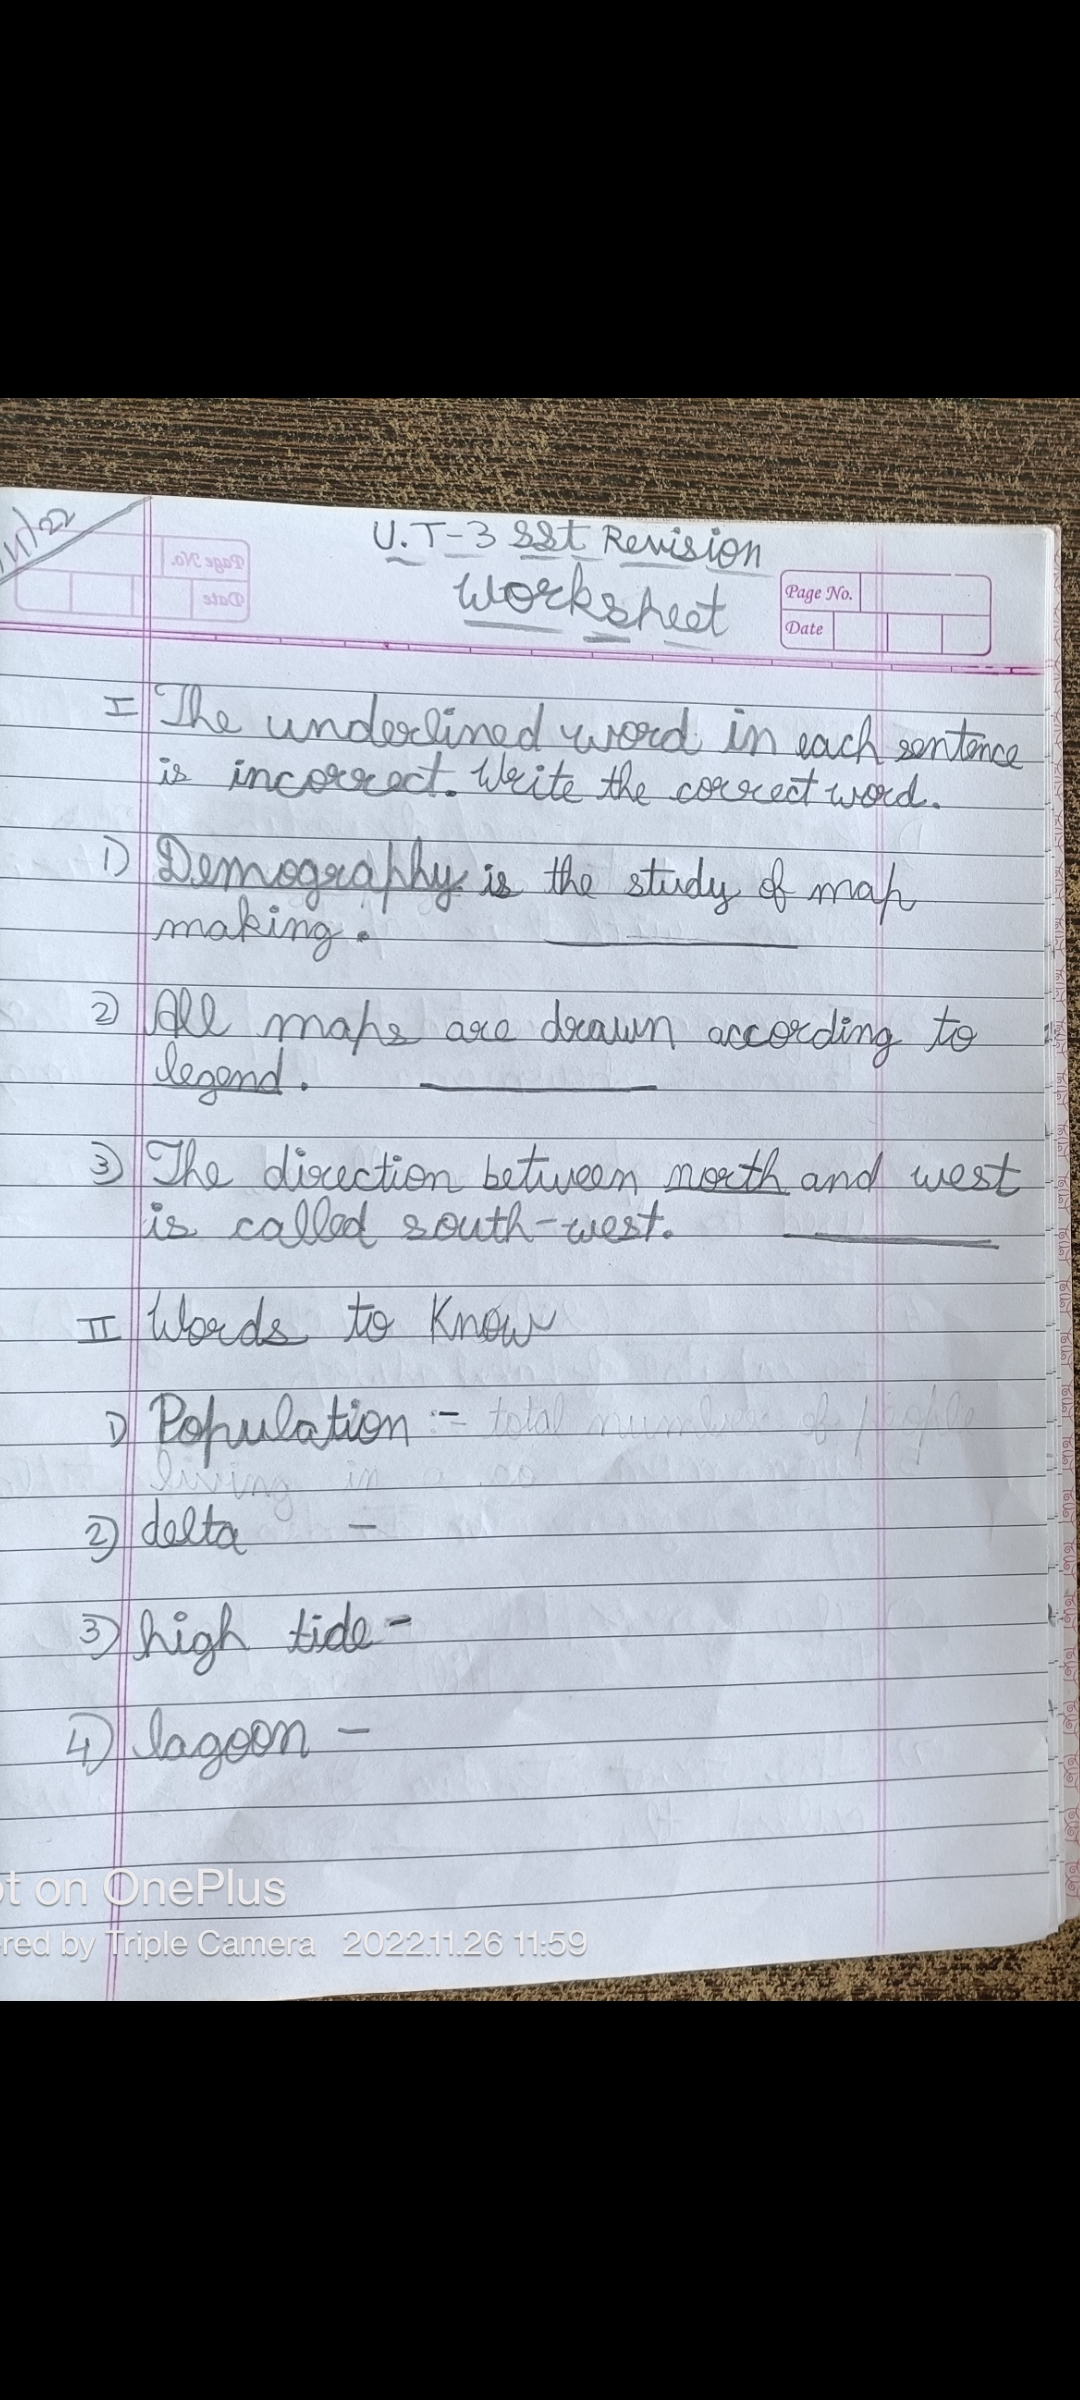 U.T-3 SSt Revision
Worksheet
Page No.
Date
I The underlined word in each sentence
is incorrect. Write the correct word.
1) Demography is the study of map
making.
2) All maps are drawn according to
legend.
3) The direction between north and west
is called south-west.
II Words to Know
1) Population :- total number of people
living in a
2) delta -
3) high tide -
4) lagoon -
ot on OnePlus
red by Triple Camera 2022.11.26 11:59